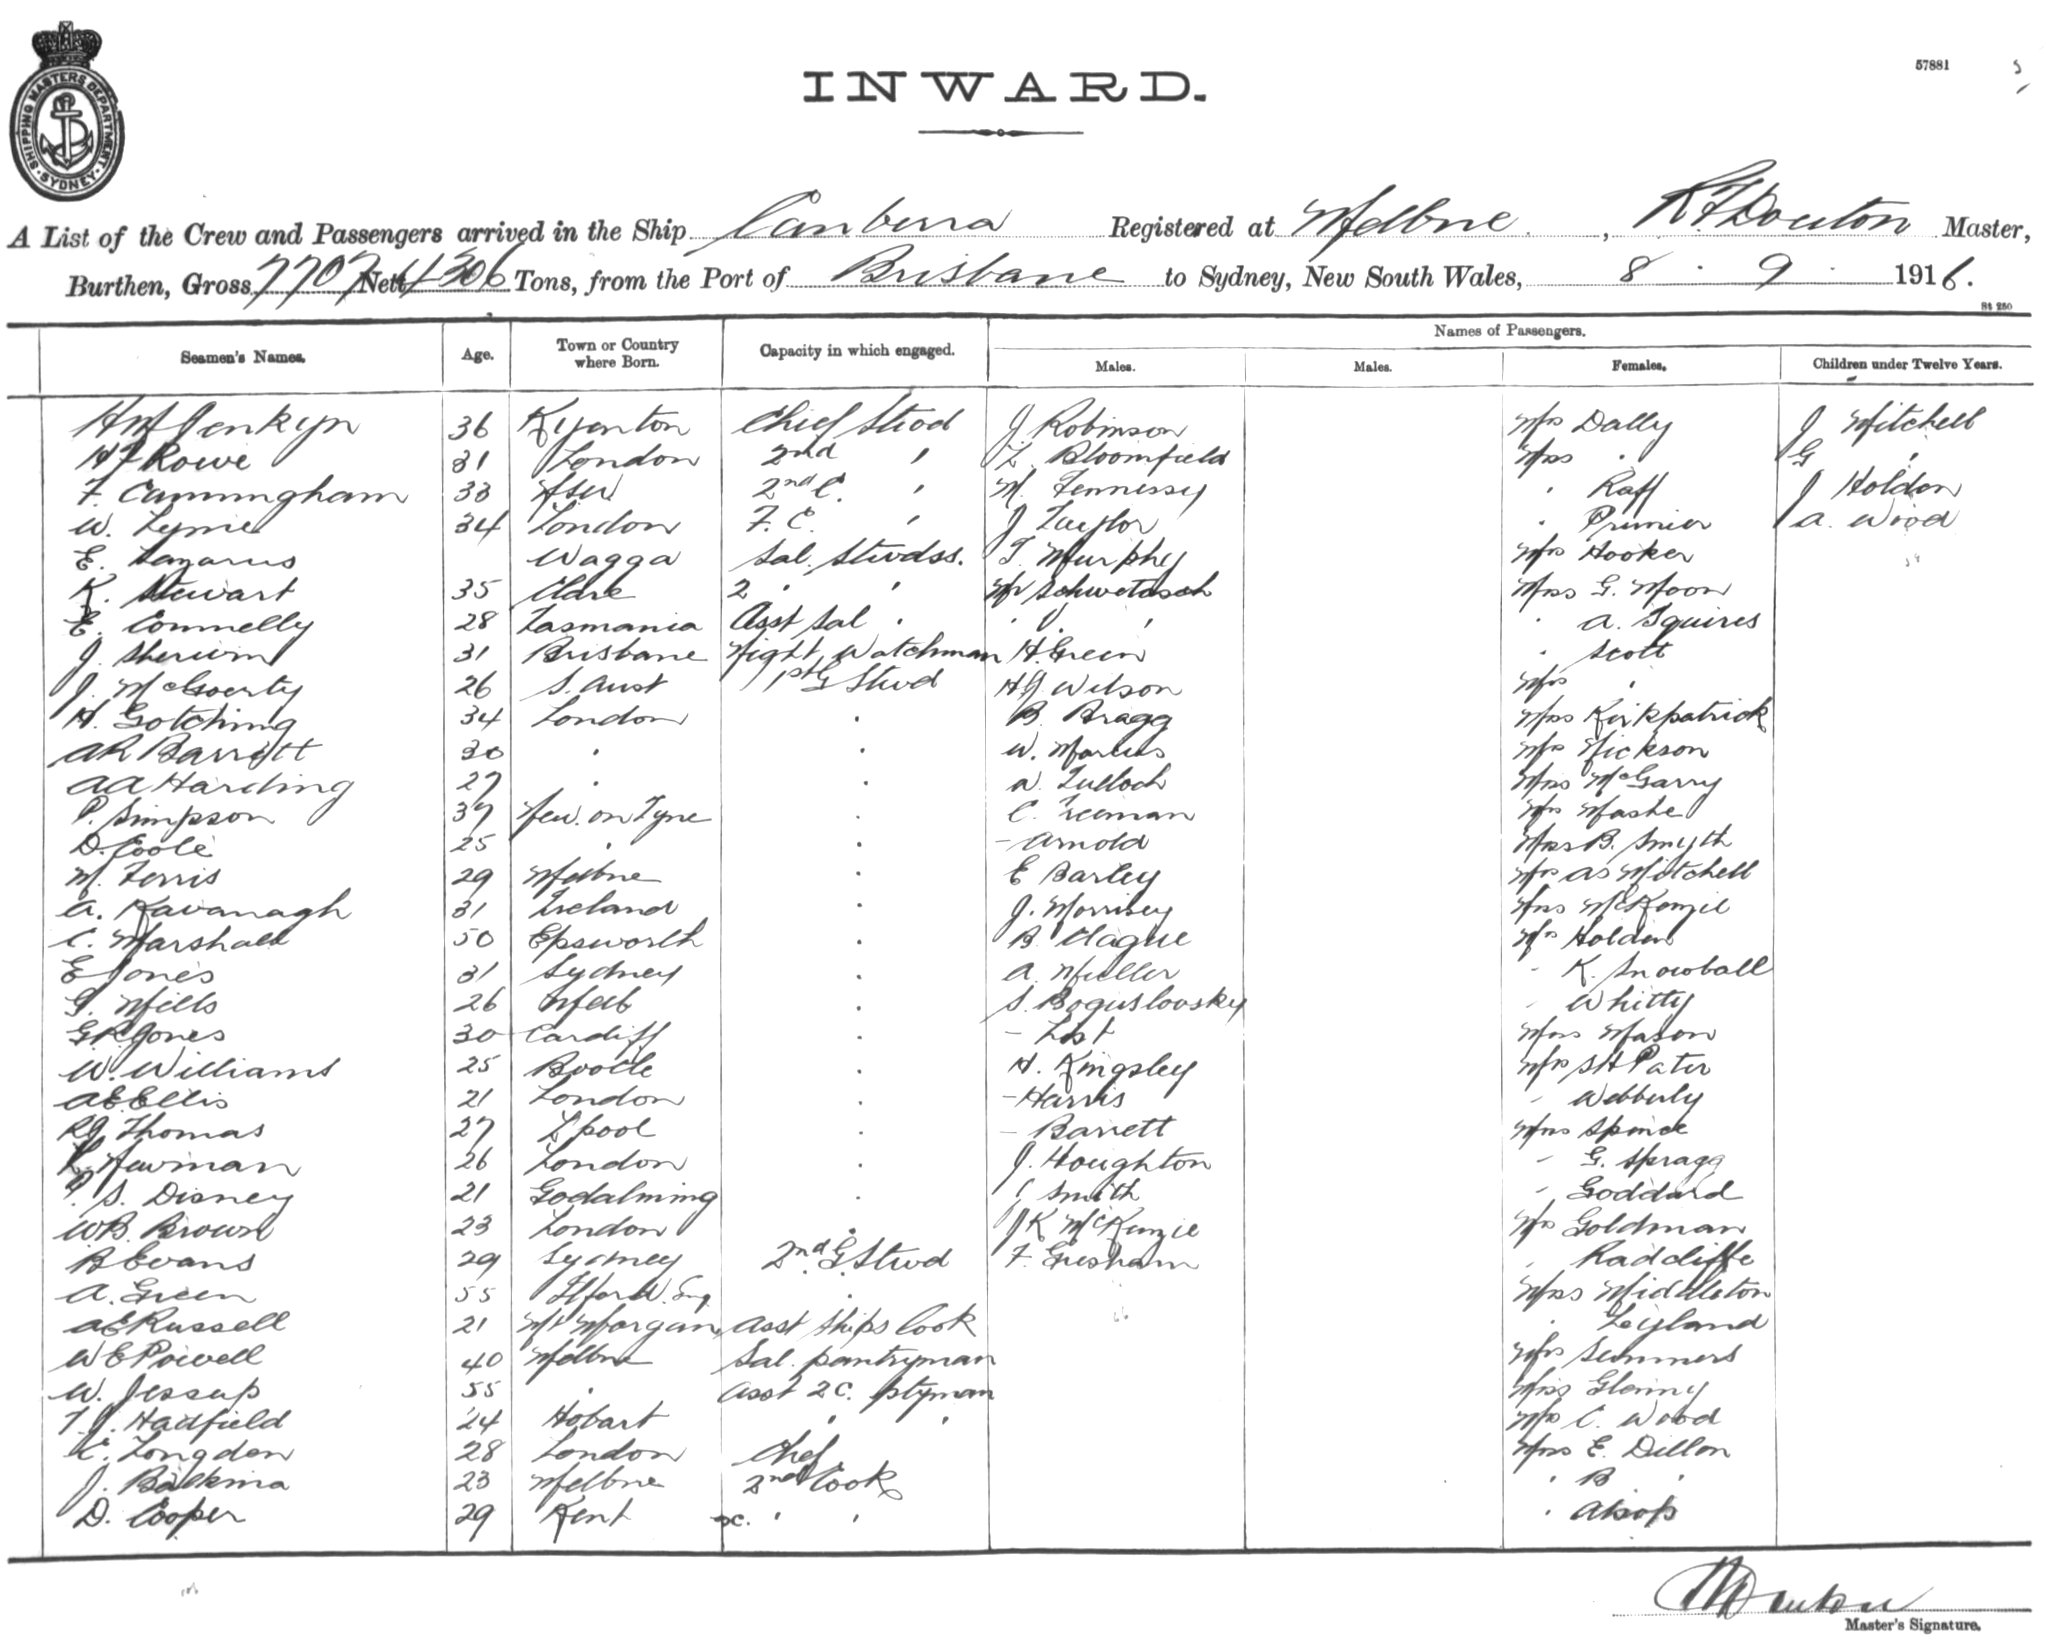 SHIPPING MASTERS DEPARTMENT SYDNEY
57881
INWARD.
A List of the Crew and Passengers arrived in the Ship Canberra Registered at Melbne, R F Douton Master,
Burthen, Gross 7707 Nett 4306 Tons, from the Port of Brisbane to Sydney, New South Wales, 8 . 9 . 1916.
St 250
Names of Passengers.
Seamen's Names. Age. Town or Country where Born. Capacity in which engaged. Males. Males. Females. Children under Twelve Years.
Jenkyn 36 Kyenton Chief Stwd J Robinson Mrs Dally J Mitchell
H J Rowe 31 London 2nd " L. Bloomfield Miss " G "
F. Cunningham 33 NSW 2nd C. " M. Fennessy " Raff J Holden
W. Lyme 34 London F. C. " J Taylor " Primier A. Wood
E. Lazarus Wagga Sal. Stwdss. T Murphy Mrs Hooker
K. Stewart 35 Clare 2 " " Mr Schwetasch Miss G. Moon
E. Connelly 28 Tasmania Asst Sal " " " " " A. Squires
J. Sherwin 31 Brisbane Night Watchman H. Green " Scott
J. McGoerty 26 S. Aust 1st G Stwd H J Wilson Mrs "
H. Gotching 34 London " B. Bragg Miss Kirkpatrick
A R Barrett 30 " " W. Marcus Mrs Nickson
A A Harding 27 " " W. Tulloch Miss McGarry
P. Simpson 37 New. on Tyne " C. Freeman Mrs Mashe
D. Coole 25 " " - Arnold Miss B. Smyth
M. Ferris 29 Melbne " E Barley Mrs A S Mitchell
A. Kavanagh 31 Ireland " J. Morrisey Miss McKenzie
C. Marshall 50 Epsworth " B. Clague Mrs Holden
E Jones 31 Sydney " A. Muller " K. Snowball
G. Mills 26 Melb " S. Boguslovsky " Whitty
G R Jones 30 Cardiff " - List Miss Mason
W. Williams 25 Bootle " H. Kingsley Mrs S H Pater
A E Ellis 21 London " - Harris " Webberly
R J Thomas 27 L'pool " - Barrett Miss Spence
L. Newman 26 London " J. Houghton " G. Spragg
S. Disney 21 Godalming " C Smith " Goddard
W B. Brown 23 London " J K McKenzie Mrs Goldman
B Evans 29 Sydney 2nd G. Stwd F. Gresham " Radcliffe
A. Green 55 Ilford Eng. " Miss Middleton
A E Russell 21 Mt Morgan Asst Ships Cook " Leyland
W E Powell 40 Melbne Sal. pantryman Mrs Summers
W. Jessup 55 " Asst 2 C. ptyman Miss Glenny
T. J. Hadfield 24 Hobart " " Mrs C. Wood
C. Longden 28 London Chef Miss E. Dillon
J. Balkma 23 Melbne 2nd Cook " B "
D. Cooper 29 Kent 2c. " " " Alsop
Master's Signature.